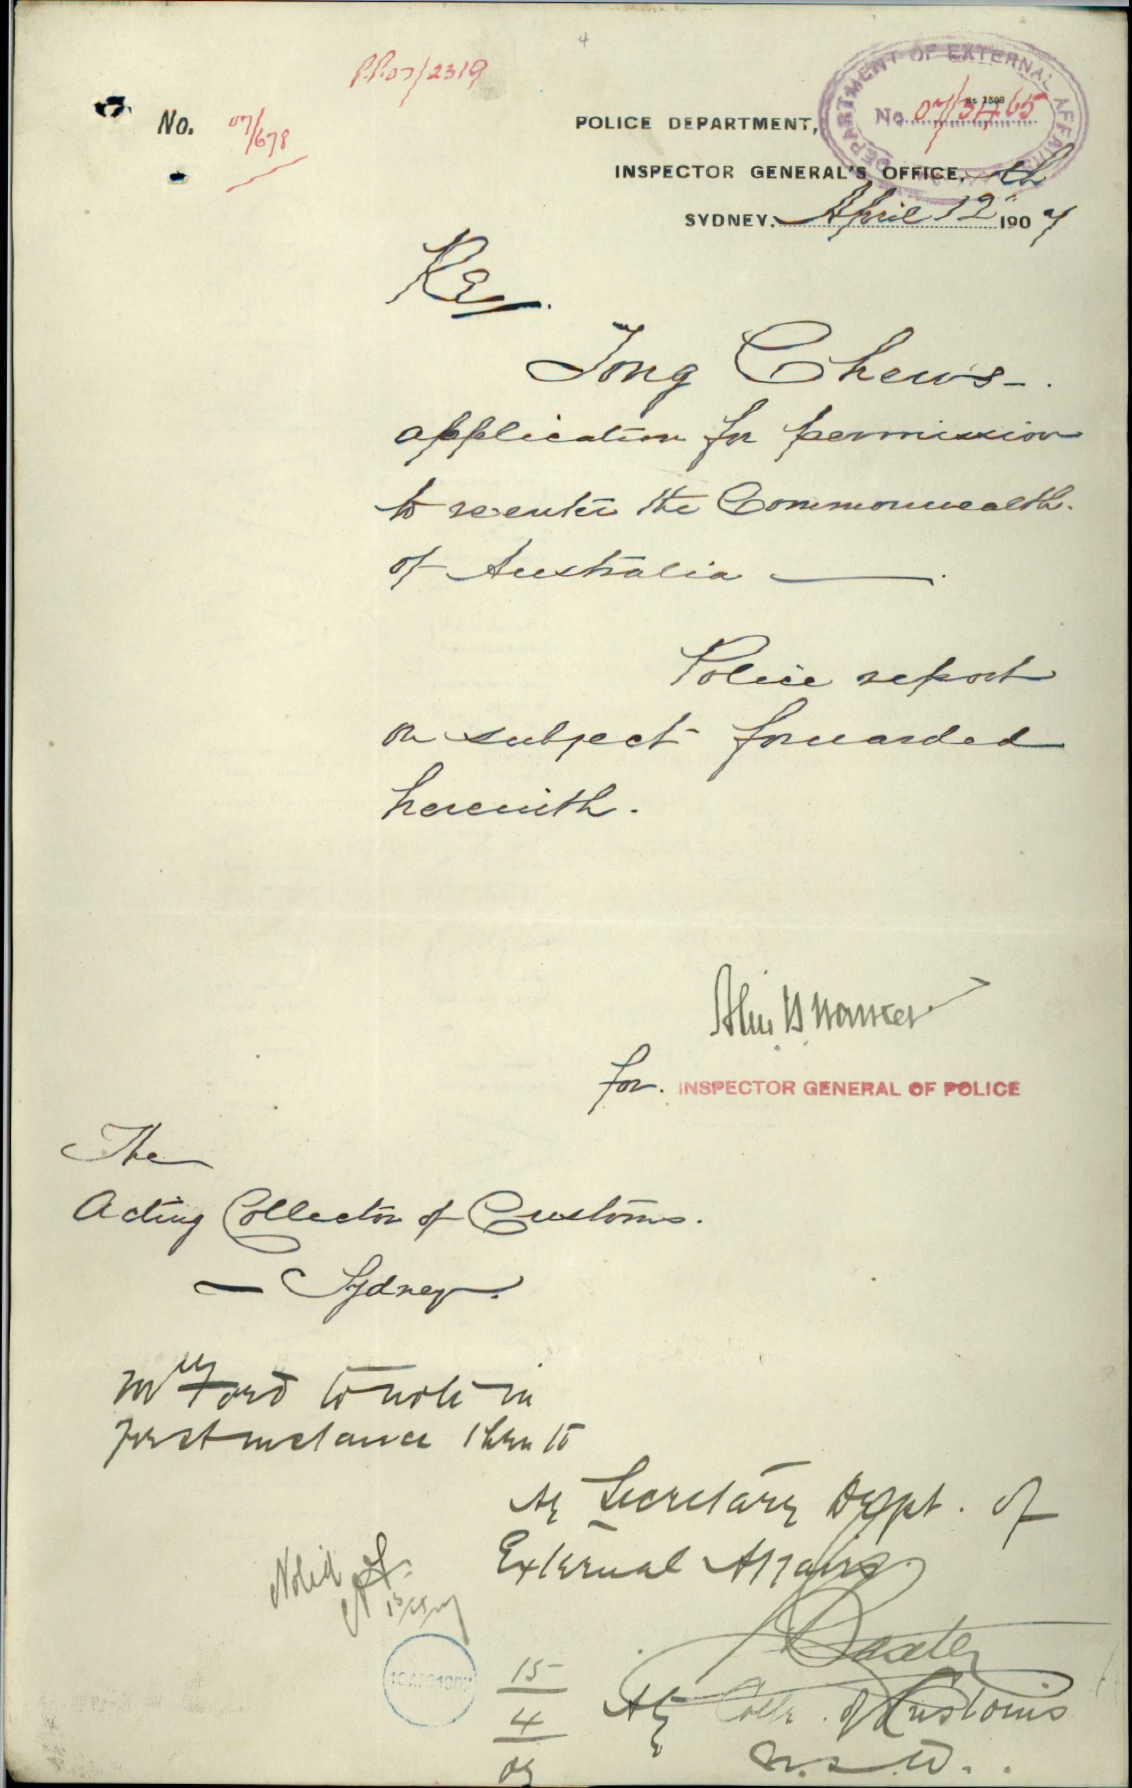 4
P.P.07/2319
DEPARTMENT OF EXTERNAL AFFAIRS
No. 07/3465
No. 07/678
POLICE DEPARTMENT,
INSPECTOR GENERAL'S OFFICE,
SYDNEY. April 12th 1907
Re.
Tong Chew's
application for permission
to re-enter the Commonwealth.
of Australia
Police report
on subject forwarded
herewith.
for. INSPECTOR GENERAL OF POLICE
The
Acting Collector of Customs.
Sydney.
Mr Ford to note in
first instance then to
Secretary Dept. of
External Affairs.
Noted
15/4/07
Baxter
15
4
07
Actg Collr. of Customs
N.S.W.